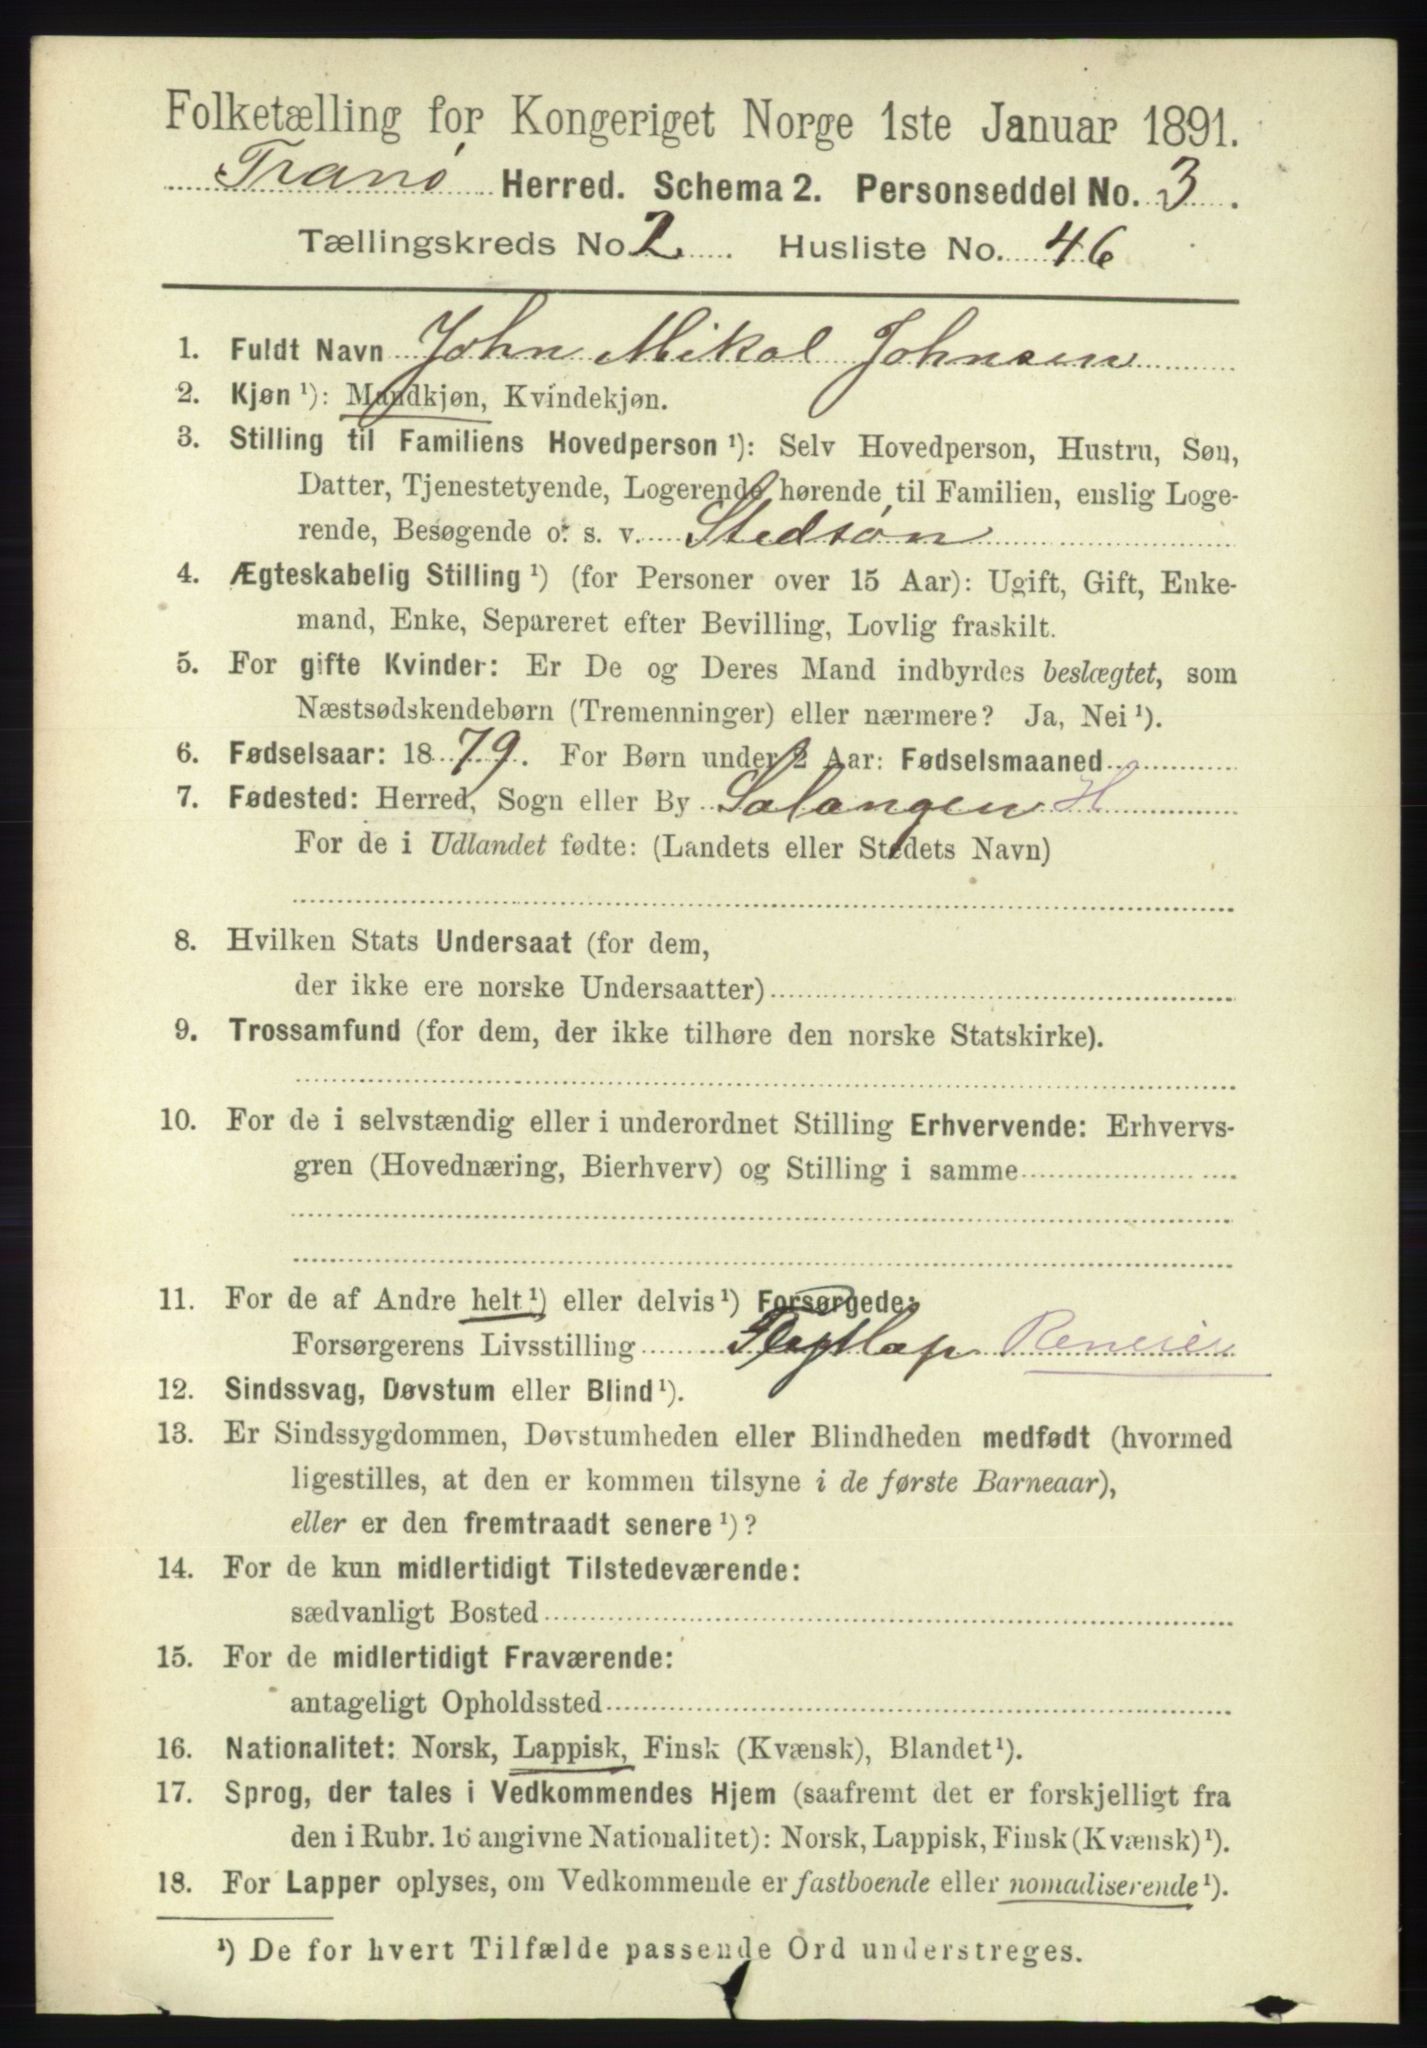 Folketælling for Kongeriget Norge 1ste Januar 1891.
Tranø Herred. Schema 2. Personseddel No. 3.
Tællingskreds No 2. Husliste No. 46
1. Fuldt Navn John Mikal Johnsen
2. Kjøn ¹): Mandkjøn, Kvindekjøn.
3. Stilling til Familiens Hovedperson ¹): Selv Hovedperson, Hustru, Søn,
Datter, Tjenestetyende, Logerende hørende til Familien, enslig Loge-
rende, Besøgende o. s. v. Stedsøn
4. Ægteskabelig Stilling ¹) (for Personer over 15 Aar): Ugift, Gift, Enke-
mand, Enke, Separeret efter Bevilling, Lovlig fraskilt.
5. For gifte Kvinder: Er De og Deres Mand indbyrdes beslægtet, som
Næstsødskendebørn (Tremenninger) eller nærmere? Ja, Nei ¹).
6. Fødselsaar: 1879. For Børn under 2 Aar: Fødselsmaaned
7. Fødested: Herred, Sogn eller By Salangen H
For de i Udlandet fødte: (Landets eller Stedets Navn)
8. Hvilken Stats Undersaat (for dem,
der ikke ere norske Undersaatter)
9. Trossamfund (for dem, der ikke tilhøre den norske Statskirke).
10. For de i selvstændig eller i underordnet Stilling Erhvervende: Erhvervs-
gren (Hovednæring, Bierhverv) og Stilling i samme
11. For de af Andre helt ¹) eller delvis ¹) Forsørgede:
Forsørgerens Livsstilling Flytlap Reneier
12. Sindssvag, Døvstum eller Blind ¹).
13. Er Sindssygdommen, Døvstumheden eller Blindheden medfødt (hvormed
ligestilles, at den er kommen tilsyne i de første Barneaar),
eller er den fremtraadt senere ¹)?
14. For de kun midlertidigt Tilstedeværende:
sædvanligt Bosted
15. For de midlertidigt Fraværende:
antageligt Opholdssted
16. Nationalitet: Norsk, Lappisk, Finsk (Kvænsk), Blandet ¹).
17. Sprog, der tales i Vedkommendes Hjem (saafremt det er forskjelligt fra
den i Rubr. 16 angivne Nationalitet): Norsk, Lappisk, Finsk (Kvænsk) ¹).
18. For Lapper oplyses, om Vedkommende er fastboende eller nomadiserende ¹).
¹) De for hvert Tilfælde passende Ord understreges.